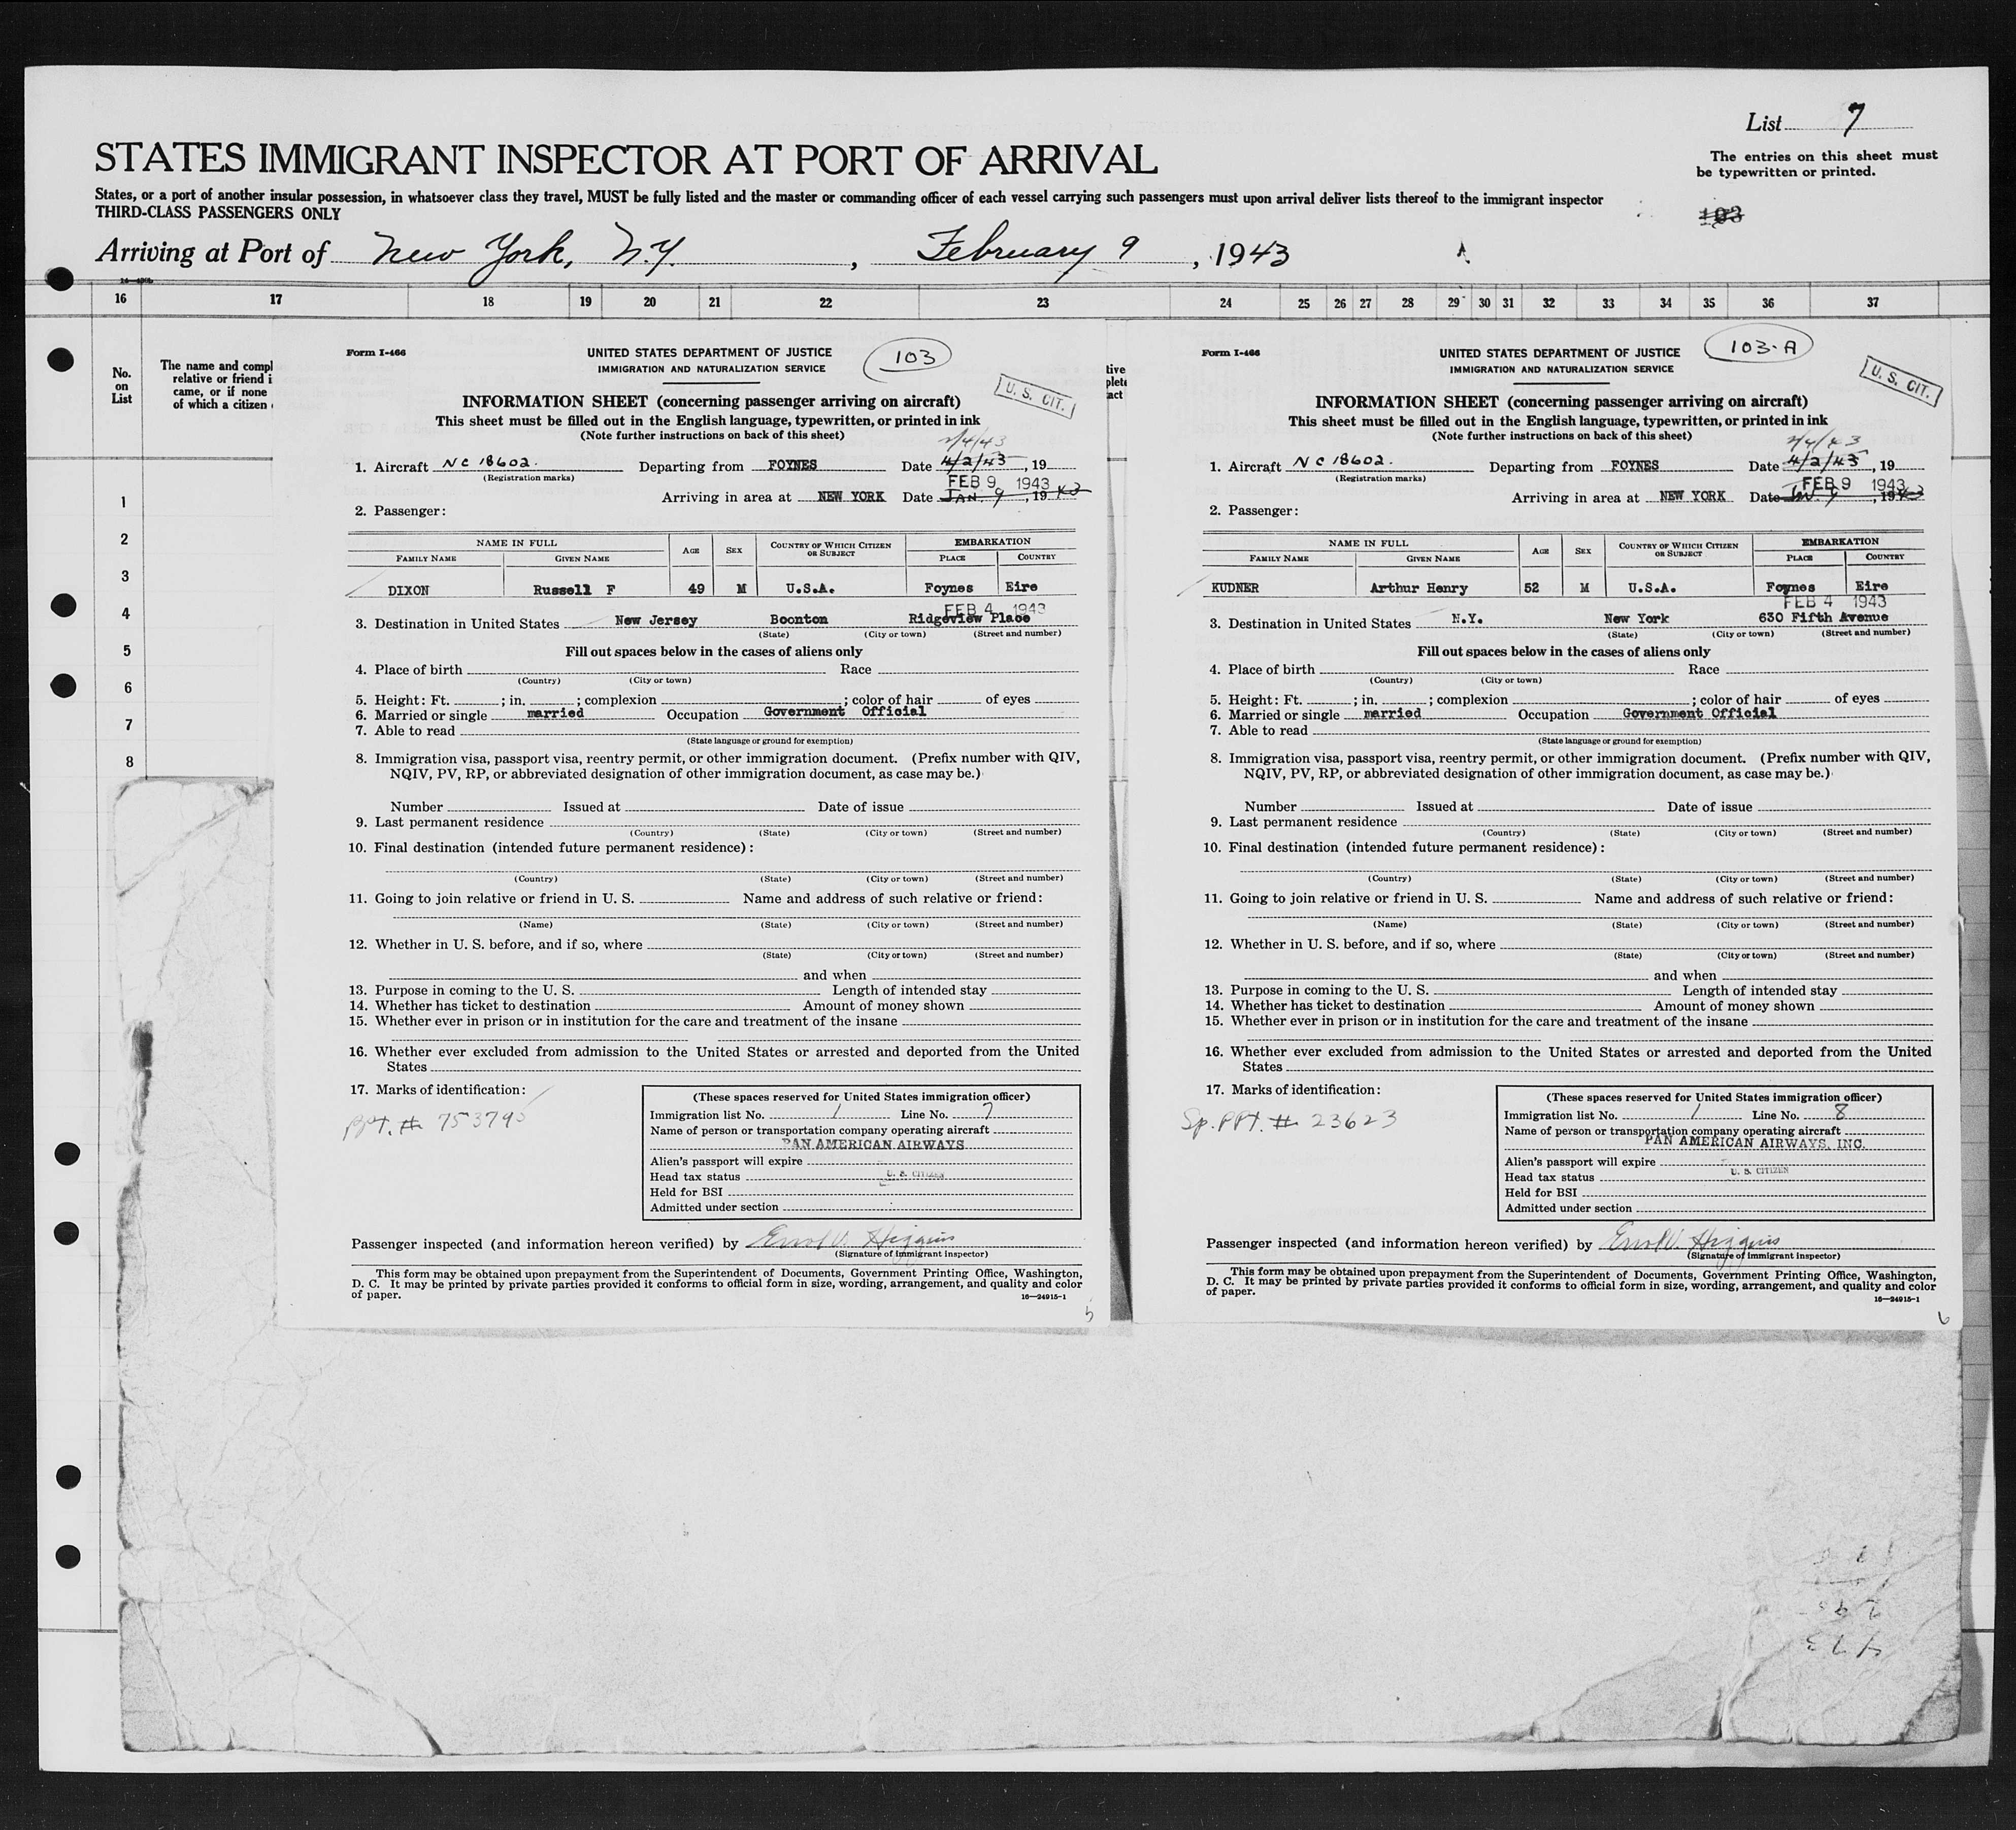 List 7
STATES IMMIGRANT INSPECTOR AT PORT OF ARRIVAL
The entries on this sheet must
be typewritten or printed.
States, or a port of another insular possession, in whatsoever class they travel, MUST be fully listed and the master or commanding officer of each vessel carrying such passengers must upon arrival deliver lists thereof to the immigrant inspector
THIRD-CLASS PASSENGERS ONLY
103
Arriving at Port of New York, N.Y., February 9, 1943
16 17 18 19 20 21 22 23 24 25 26 27 28 29 30 31 32 33 34 35 36 37
No.
on
List
The name and compl
relative or friend i
came, or if none
of which a citizen
1
2
3
4
5
6
7
8
Form I-466
UNITED STATES DEPARTMENT OF JUSTICE
IMMIGRATION AND NATURALIZATION SERVICE
103
U. S. CIT.
INFORMATION SHEET (concerning passenger arriving on aircraft)
This sheet must be filled out in the English language, typewritten, or printed in ink
(Note further instructions on back of this sheet)
2/4/43
1. Aircraft NC 18602. Departing from FOYNES Date 4/2/43, 19
(Registration marks)
FEB 9 1943
Arriving in area at NEW YORK Date JAN. 9, 1943
2. Passenger:
NAME IN FULL AGE SEX COUNTRY OF WHICH CITIZEN OR SUBJECT EMBARKATION
FAMILY NAME GIVEN NAME PLACE COUNTRY
DIXON Russell F 49 M U.S.A. Foynes Eire
FEB 4 1943
3. Destination in United States New Jersey Boonton Ridgeview Place
(State) (City or town) (Street and number)
Fill out spaces below in the cases of aliens only
4. Place of birth Race
(Country) (City or town)
5. Height: Ft. ; in. ; complexion ; color of hair of eyes
6. Married or single married Occupation Government Official
7. Able to read
(State language or ground for exemption)
8. Immigration visa, passport visa, reentry permit, or other immigration document. (Prefix number with QIV,
NQIV, PV, RP, or abbreviated designation of other immigration document, as case may be.)
Number Issued at Date of issue
9. Last permanent residence
(Country) (State) (City or town) (Street and number)
10. Final destination (intended future permanent residence):
(Country) (State) (City or town) (Street and number)
11. Going to join relative or friend in U. S. Name and address of such relative or friend:
(Name) (State) (City or town) (Street and number)
12. Whether in U. S. before, and if so, where
(State) (City or town) (Street and number)
and when
13. Purpose in coming to the U. S. Length of intended stay
14. Whether has ticket to destination Amount of money shown
15. Whether ever in prison or in institution for the care and treatment of the insane
16. Whether ever excluded from admission to the United States or arrested and deported from the United
States
17. Marks of identification:
PPT. # 753795
(These spaces reserved for United States immigration officer)
Immigration list No. 1 Line No. 7
Name of person or transportation company operating aircraft
PAN AMERICAN AIRWAYS
Alien's passport will expire
Head tax status U. S. CITIZEN
Held for BSI
Admitted under section
Passenger inspected (and information hereon verified) by Errol V. Higgins
(Signature of immigrant inspector)
This form may be obtained upon prepayment from the Superintendent of Documents, Government Printing Office, Washington,
D. C. It may be printed by private parties provided it conforms to official form in size, wording, arrangement, and quality and color
of paper.
16—24915-1
5
tive
plete
act
Form I-466
UNITED STATES DEPARTMENT OF JUSTICE
IMMIGRATION AND NATURALIZATION SERVICE
103-A
U. S. CIT.
INFORMATION SHEET (concerning passenger arriving on aircraft)
This sheet must be filled out in the English language, typewritten, or printed in ink
(Note further instructions on back of this sheet)
2/4/43
1. Aircraft NC 18602. Departing from FOYNES Date 4/2/43, 19
(Registration marks)
FEB 9 1943
Arriving in area at NEW YORK Date 9, 1943
2. Passenger:
NAME IN FULL AGE SEX COUNTRY OF WHICH CITIZEN OR SUBJECT EMBARKATION
FAMILY NAME GIVEN NAME PLACE COUNTRY
KUDNER Arthur Henry 52 M U.S.A. Foynes Eire
FEB 4 1943
3. Destination in United States N.Y. New York 630 Fifth Avenue
(State) (City or town) (Street and number)
Fill out spaces below in the cases of aliens only
4. Place of birth Race
(Country) (City or town)
5. Height: Ft. ; in. ; complexion ; color of hair of eyes
6. Married or single married Occupation Government Official
7. Able to read
(State language or ground for exemption)
8. Immigration visa, passport visa, reentry permit, or other immigration document. (Prefix number with QIV,
NQIV, PV, RP, or abbreviated designation of other immigration document, as case may be.)
Number Issued at Date of issue
9. Last permanent residence
(Country) (State) (City or town) (Street and number)
10. Final destination (intended future permanent residence):
(Country) (State) (City or town) (Street and number)
11. Going to join relative or friend in U. S. Name and address of such relative or friend:
(Name) (State) (City or town) (Street and number)
12. Whether in U. S. before, and if so, where
(State) (City or town) (Street and number)
and when
13. Purpose in coming to the U. S. Length of intended stay
14. Whether has ticket to destination Amount of money shown
15. Whether ever in prison or in institution for the care and treatment of the insane
16. Whether ever excluded from admission to the United States or arrested and deported from the United
States
17. Marks of identification:
Sp. PPT. # 23623
(These spaces reserved for United States immigration officer)
Immigration list No. 1 Line No. 8
Name of person or transportation company operating aircraft
PAN AMERICAN AIRWAYS, INC.
Alien's passport will expire
Head tax status U. S. CITIZEN
Held for BSI
Admitted under section
Passenger inspected (and information hereon verified) by Errol V. Higgins
(Signature of immigrant inspector)
This form may be obtained upon prepayment from the Superintendent of Documents, Government Printing Office, Washington,
D. C. It may be printed by private parties provided it conforms to official form in size, wording, arrangement, and quality and color
of paper.
16—24915-1
6